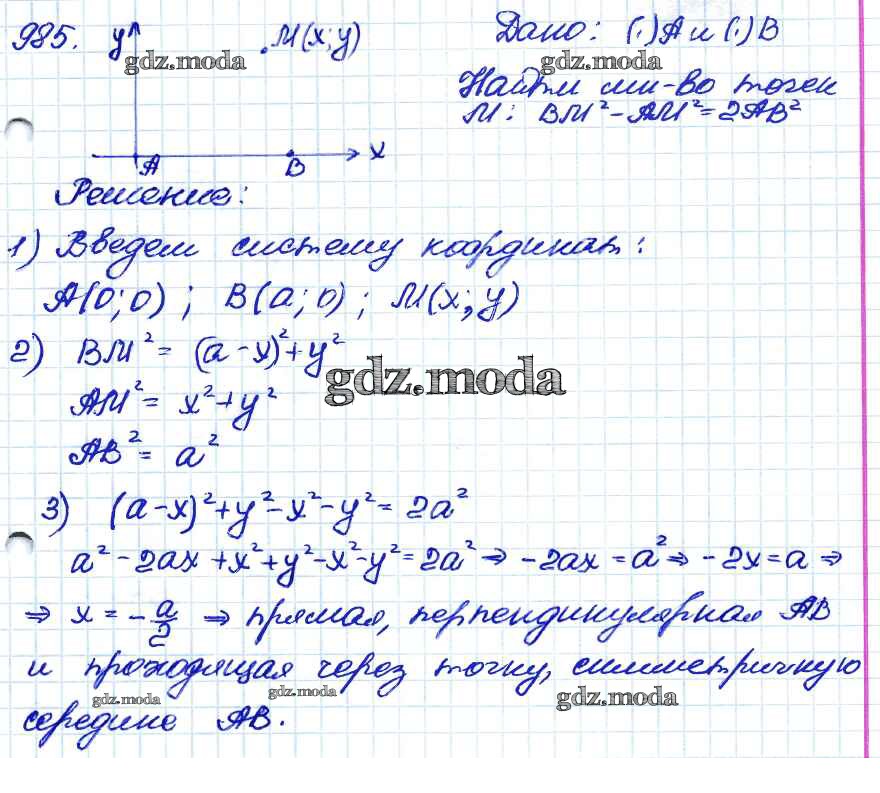 985. y M(x; y) Дано: (·)A и (·)B
gdz.moda gdz.moda
Найти мн-во точек
M: BM² - AM² = 2AB²
A B x
Решение:
1) Введем систему координат:
A(0; 0) ; B(a; 0) ; M(x; y)
2) BM² = (a - x)² + y²
gdz.moda
AM² = x² + y²
AB² = a²
3) (a - x)² + y² - x² - y² = 2a²
a² - 2ax + x² + y² - x² - y² = 2a² ⇒ -2ax = a² ⇒ -2x = a ⇒
⇒ x = -a/2 ⇒ прямая, перпендикулярная AB
и проходящая через точку, симметричную
gdz.moda gdz.moda gdz.moda
середине AB.